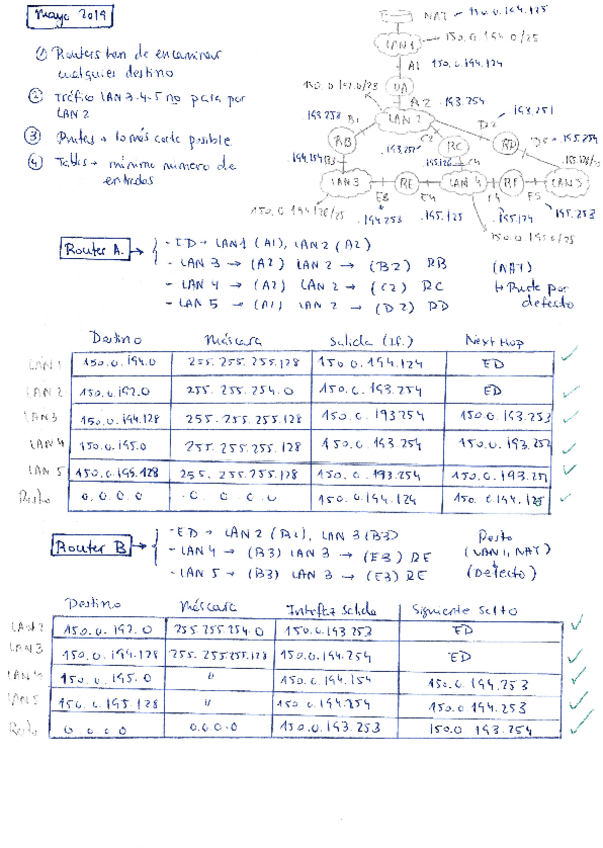 Mayo 2019
① Routers han de encaminar
cualquier destino
② Tráfico LAN 3-4-5 no pasa por
LAN 2
③ Rutas → lo más corto posible
④ Tablas → mínimo número de
entradas
NAT → 150.0.194.125
LAN 1
150.0.194.0/25
A1 150.0.194.124
150.0.192.0/23
A2 193.254
LAN 2
193.253 B1
193.251
RB
RC
RD
193.252
C2
195.254
194.254 B3
LAN 3
RE
LAN 4
RF
LAN 5
E3
E4
F4
F5
150.0.194.128/25
.194.253
.195.125
.195.124
195.253
150.0.195.0/25
Router A. → - ED → LAN1 (A1), LAN2 (A2)
- LAN 3 → (A2) LAN 2 → (B2) RB (NAT)
- LAN 4 → (A2) LAN 2 → (C2) RC ↳ Ruta por
- LAN 5 → (A1) LAN 2 → (D2) RD defecto
Destino Máscara Salida (If.) Next Hop
LAN 1 150.0.194.0 255.255.255.128 150.0.194.124 ED ✓
LAN 2 150.0.192.0 255.255.254.0 150.0.193.254 ED ✓
LAN 3 150.0.194.128 255.255.255.128 150.0.193.254 150.0.193.253 ✓
LAN 4 150.0.195.0 255.255.255.128 150.0.193.254 150.0.193.252 ✓
LAN 5 150.0.195.128 255.255.255.128 150.0.193.254 150.0.193.251 ✓
Resto 0.0.0.0 0.0.0.0 150.0.194.124 150.0.194.125 ✓
Router B → - ED → LAN 2 (B2), LAN 3 (B3) Resto
- LAN 4 → (B3) LAN 3 → (E3) RE (LAN 1, NAT)
- LAN 5 → (B3) LAN 3 → (E3) RE (Defecto)
Destino Máscara Interfaz Salida Siguiente Salto
LAN 2 150.0.192.0 255.255.254.0 150.0.193.253 ED ✓
LAN 3 150.0.194.128 255.255.255.128 150.0.194.254 ED ✓
LAN 4 150.0.195.0 " 150.0.194.254 150.0.194.253 ✓
LAN 5 150.0.195.128 " 150.0.194.254 150.0.194.253 ✓
Resto 0.0.0.0 0.0.0.0 150.0.193.253 150.0.193.254 ✓